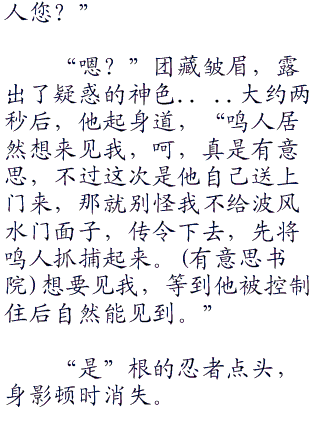 人您？”
“嗯？”团藏皱眉，露
出了疑惑的神色.. ..大约两
秒后，他起身道，“鸣人居
然想来见我，呵，真是有意
思，不过这次是他自己送上
门来，那就别怪我不给波风
水门面子，传令下去，先将
鸣人抓捕起来。(有意思书
院)想要见我，等到他被控制
住后自然能见到。”
“是”根的忍者点头，
身影顿时消失。